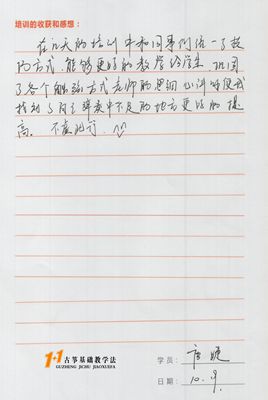 培训的收获和感想：
在几天的培训中和同事们统一了技
的方式、能够更好的教学给学生
了各个触弦方式老师的
找到了自己弹奏中不足的地方更好的提
高。不虚此行、
1+1 古筝基础教学法
GUZHENG JICHU JIAOXUEFA
学员：
日期：10.9.